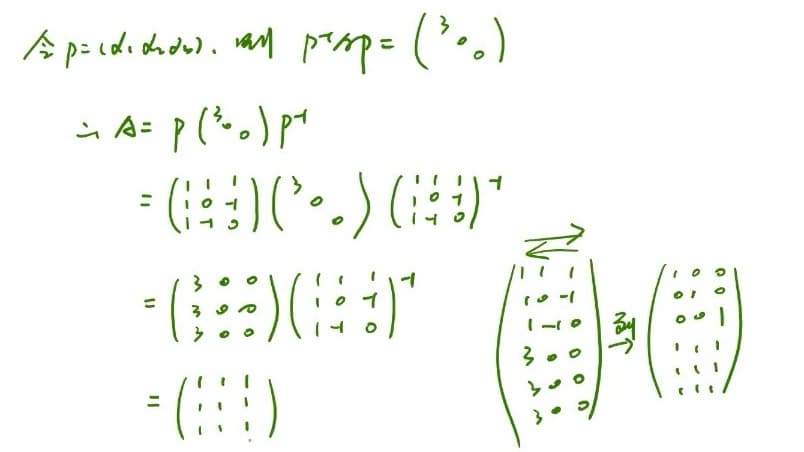 令 P=(α₁ α₂ α₃). 则 P⁻¹AP = (3 0 0)
∴ A= P (3 0 0) P⁻¹
= (1 1 1; 1 0 -1; 1 -1 0) (3 0 0) (1 1 1; 1 0 -1; 1 -1 0)⁻¹
= (3 0 0; 3 0 0; 3 0 0) (1 1 1; 1 0 -1; 1 -1 0)⁻¹
= (1 1 1; 1 1 1; 1 1 1)
(1 1 1; 1 0 -1; 1 -1 0; 3 0 0; 3 0 0; 3 0 0) → (1 0 0; 0 1 0; 0 0 1; 1 1 1; 1 1 1; 1 1 1)